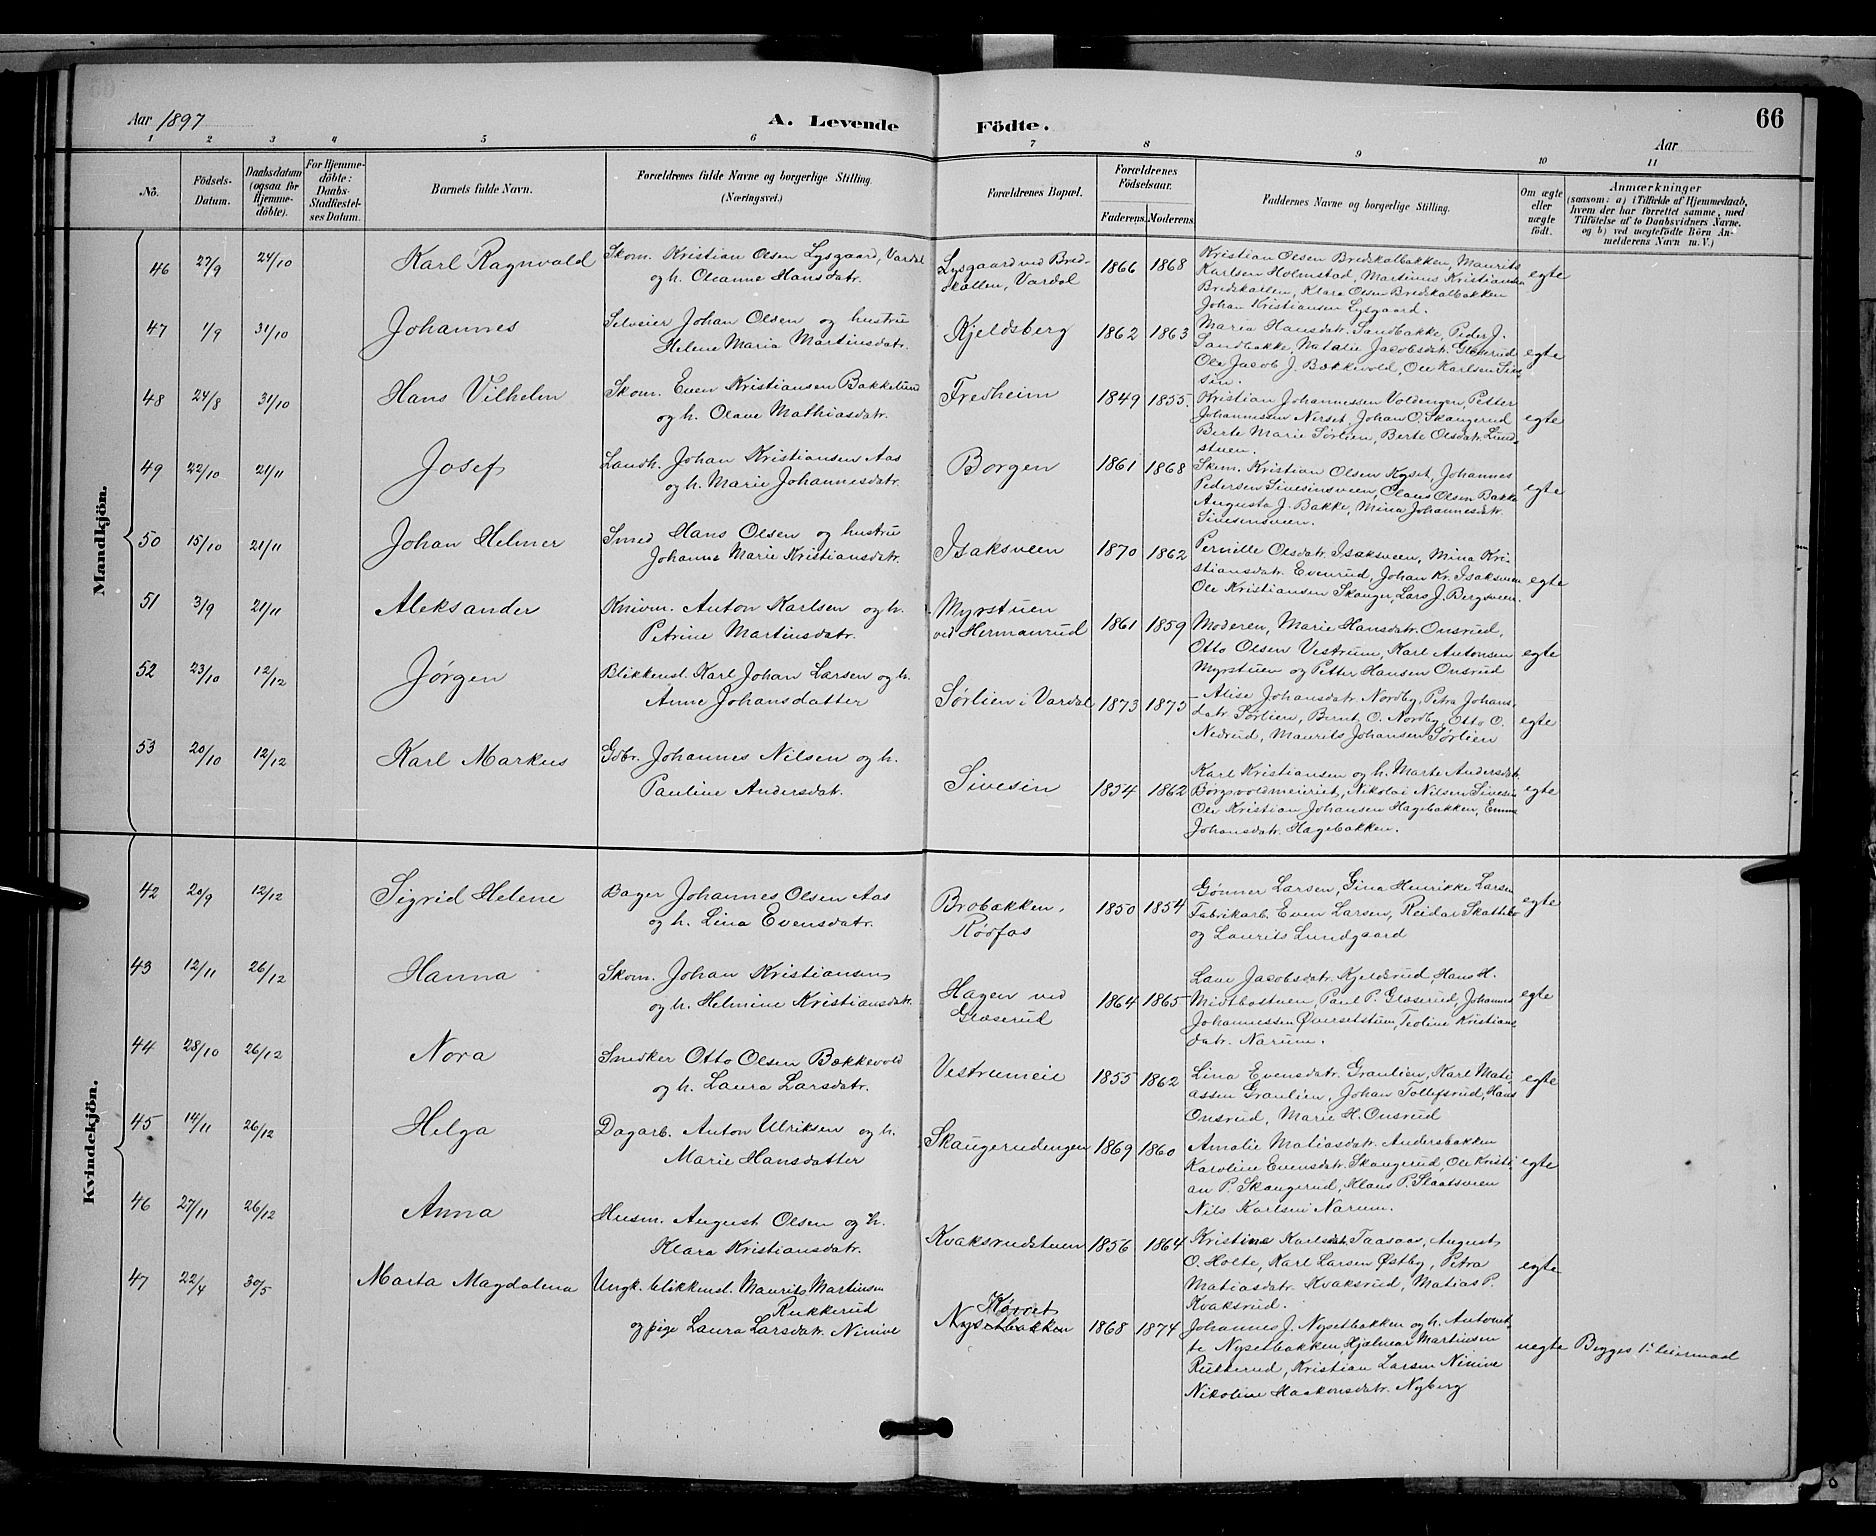 Aar 1897
A. Levende Födte.
66
Aar
1 2 3 4 5 6 7 8 9 10 11
No.
Födsels-Datum.
Daabsdatum (ogsaa for Hjemmedöbte).
For Hjemmedöbte: Daabs-Stadfæstelses Datum.
Barnets fulde Navn.
Forældrenes fulde Navne og borgerlige Stilling. (Næringsvei.)
Forældrenes Bopæl.
Forældrenes Födselsaar.
Faderens. Moderens.
Faddernes Navne og borgerlige Stilling.
Om ægte eller uægte födt.
Anmærkninger
(saasom: a) i Tilfælde af Hjemmedaab, hvem der har forrettet samme, med Tilföielse af to Daabsvidners Navne. og b) ved uægtefödte Börn Anmelderens Navn m. V.)
Mandkjön.
46 27/9 24/10 Karl Ragnvald
Skom. Kristian Olsen Lysgaard, Vardal
og h. Oleanne Hansdatr.
Lysgaard ved Bred-
skallen, Vardal
1866 1868
Kristian Olsen Bredskalbakken, Maurits
Karlsen Holmstad, Martinus Kristiansen
Bredskalsen, Klara Olsen Bredskalbakken
Johan Kristiansen Lysgaard.
egte
47 1/9 31/10 Johannes
Selveier Johan Olsen og hustru
Helene Maria Martinsdatr.
Kjeldsberg
1862 1863
Maria Hansdatr. Sandbakke, Peder J.
Sandbakke, Natalie Jacobsdatr. Glæserud
Ole Jacob J. Bækkevold, Ole Karlsen Sive-
sin.
egte
48 24/8 31/10 Hans Vilhelm
Skom. Even Kristiansen Bakkelund
og h. Olave Mathiasdatr.
Fredheim
1849 1855.
Kristian Johannessen Voldengen, Petter
Johannessen Nerset, Johan O. Skaugerud
Berte Marie Sørlien, Berte Olsdatr. Lund-
stuen.
egte
49 22/10 21/11 Josef
Landh. Johan Kristiansen Aas
og h. Marie Johannesdatr.
Borgen
1861 1868
Skom. Kristian Olsen Kyset, Johannes
Pedersen Sivesinsveen, Claus Olsen Bakke
Augusta J. Bakke, Mina Johannesdatr.
Sivesinsveen.
egte
50 15/10 21/11 Johan Helmer
Smed Hans Olsen og hustru
Johanne Marie Kristiansdatr.
Isaksveen
1870 1862
Pernille Olsdatr. Isaksveen, Mina Kri-
stiansdatr. Evenrud, Johan Kr. Isaksveen
Ole Kristiansen Skauger, Lars J. Bergsveen.
egte
51 3/9 21/11 Aleksander
Knivm. Anton Karlsen og h.
Petrine Martinsdatr.
Myrstuen
ved Hermanrud
1861 1859
Moderen, Marie Hansdatr. Onsrud,
Otto Olsen Vestrum, Karl Antonsen
Myrstuen og Petter Hansen Onsrud
egte
52 23/10 12/12 Jørgen
Blikkensl. Karl Johan Larsen og h.
Anne Johansdatter
Sørlien i Vardal
1873 1873
Alise Johansdatr. Nordby, Petra Johans-
datr. Sørlien, Bernt O. Nordby, Otto O.
Nedrud, Maurits Johansen Sørlien
egte
53 20/10 12/12 Karl Markus
Gdbr. Johannes Nilsen og h.
Pauline Andersdatr.
Sivesin
1854 1862
Karl Kristiansen og h. Marte Andersdatr.
Borgvoldmeieriet, Nikolai Nilsen Sivesin
Ole Kristian Johansen Hagebakken, Emma
Johansdatr. Hagebakken.
egte
Kvindekjön.
42 20/9 12/12 Sigrid Helene
Bager Johannes Olsen Aas
og h. Lina Evensdatr.
Brobakken,
Røsfas
1850 1854
Gønner Larsen, Gina Henrikke Larsen
Fabrikarb. Even Larsen, Reidar Skattebo
og Laurits Lundgaard
egte
43 12/11 26/12 Hanna
Skom. Johan Kristiansen
og h. Helmine Kristiansdatr.
Hagen ved
Glæserud
1864 1865
Laue Jacobsdatr. Kjeldsrud, Hans H.
Midtbøstuen, Paul P. Glæserud, Johannes
Johannessen Øversetstuen, Teoline Kristians-
datr. Narum.
egte
44 28/10 26/12 Nora
Snedker Otto Olsen Bækkevold
og h. Laura Larsdatr.
Vestrumeie
1855 1862
Lina Evensdatr. Graulien, Karl Mati-
assen Graulien, Johan Tollefsrud, Hans
Onsrud, Marie H. Onsrud
egte
45 14/11 26/12 Helga
Dagarb. Anton Ulriksen og h.
Marie Hansdatter
Skaugerudengen
1869 1860
Amalie Matiasdatr. Andersbakken
Karoline Evensdatr. Skaugerud, Ole Kristi-
an P. Skaugerud, Klaus P. Slaatsveen
Nils Karlsen Narum.
egte
46 27/11 26/12 Anna
Husm. August Olsen og h.
Klara Kristiansdatr.
Kvaksrudstuen
1856 1864
Kristine Karlsdatr. Taasaas, August
O. Holte, Karl Larsen Østby, Petra
Matiasdatr. Kvaksrud, Matias P.
Kvaksrud.
egte
47 22/4 30/5 Marta Magdalena
Ungk. blikkensl. Maurits Martinsen
Rukkerud
og pige Laura Larsdatr. Ninive
Nysetbakken
1868 1874
Johannes J. Nysetbakken og h. Antonet-
te Nysetbakken, Hjalmar Martinsen
Rukkerud, Kristian Larsen Ninive
Nikoline Haakonsdatr. Nyberg
uegte
Begges 1ste leiermaal